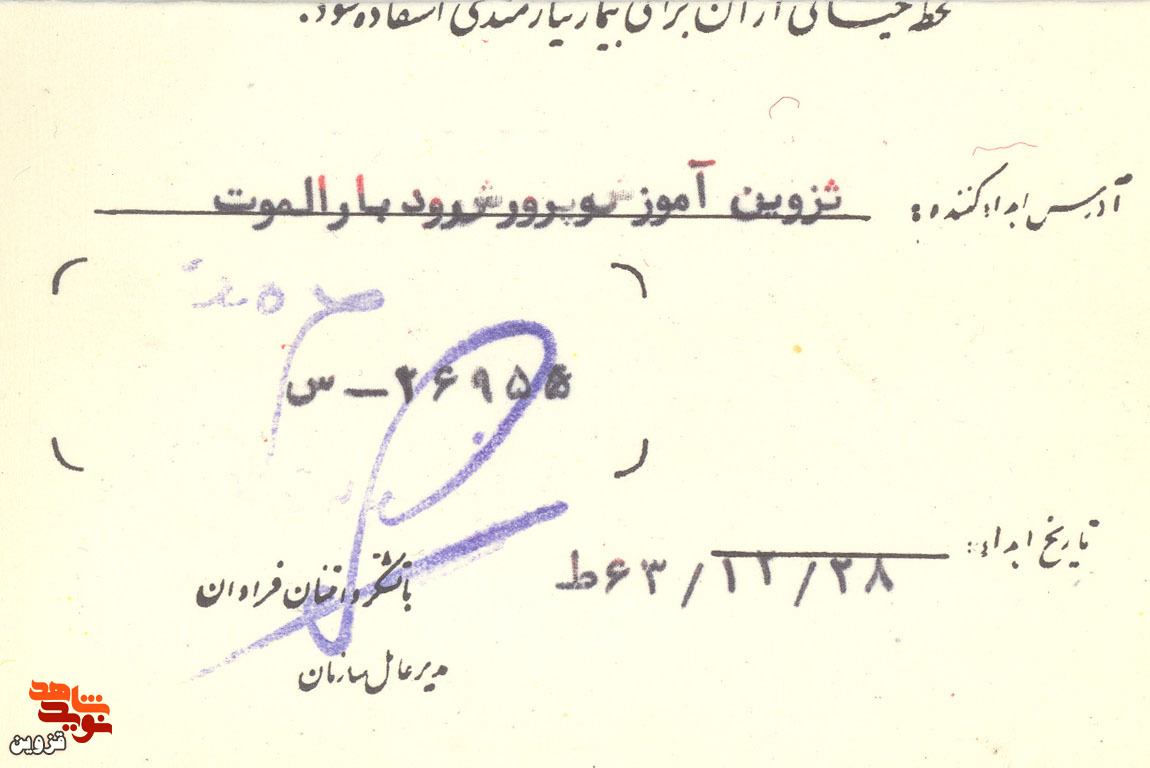 حیاتی از آن برای بیمار نیازمندی استفاده شود.
آدرس اهداء کننده:
قزوین آموزش وپرورش رود بار الموت
۲۶۹۵۵ – س
تاریخ اهداء:
۶۳/۱۲/۲۸ط
باتشکر و امتنان فراوان
مدیر عامل سازمان
نوید شاهد
قزوین